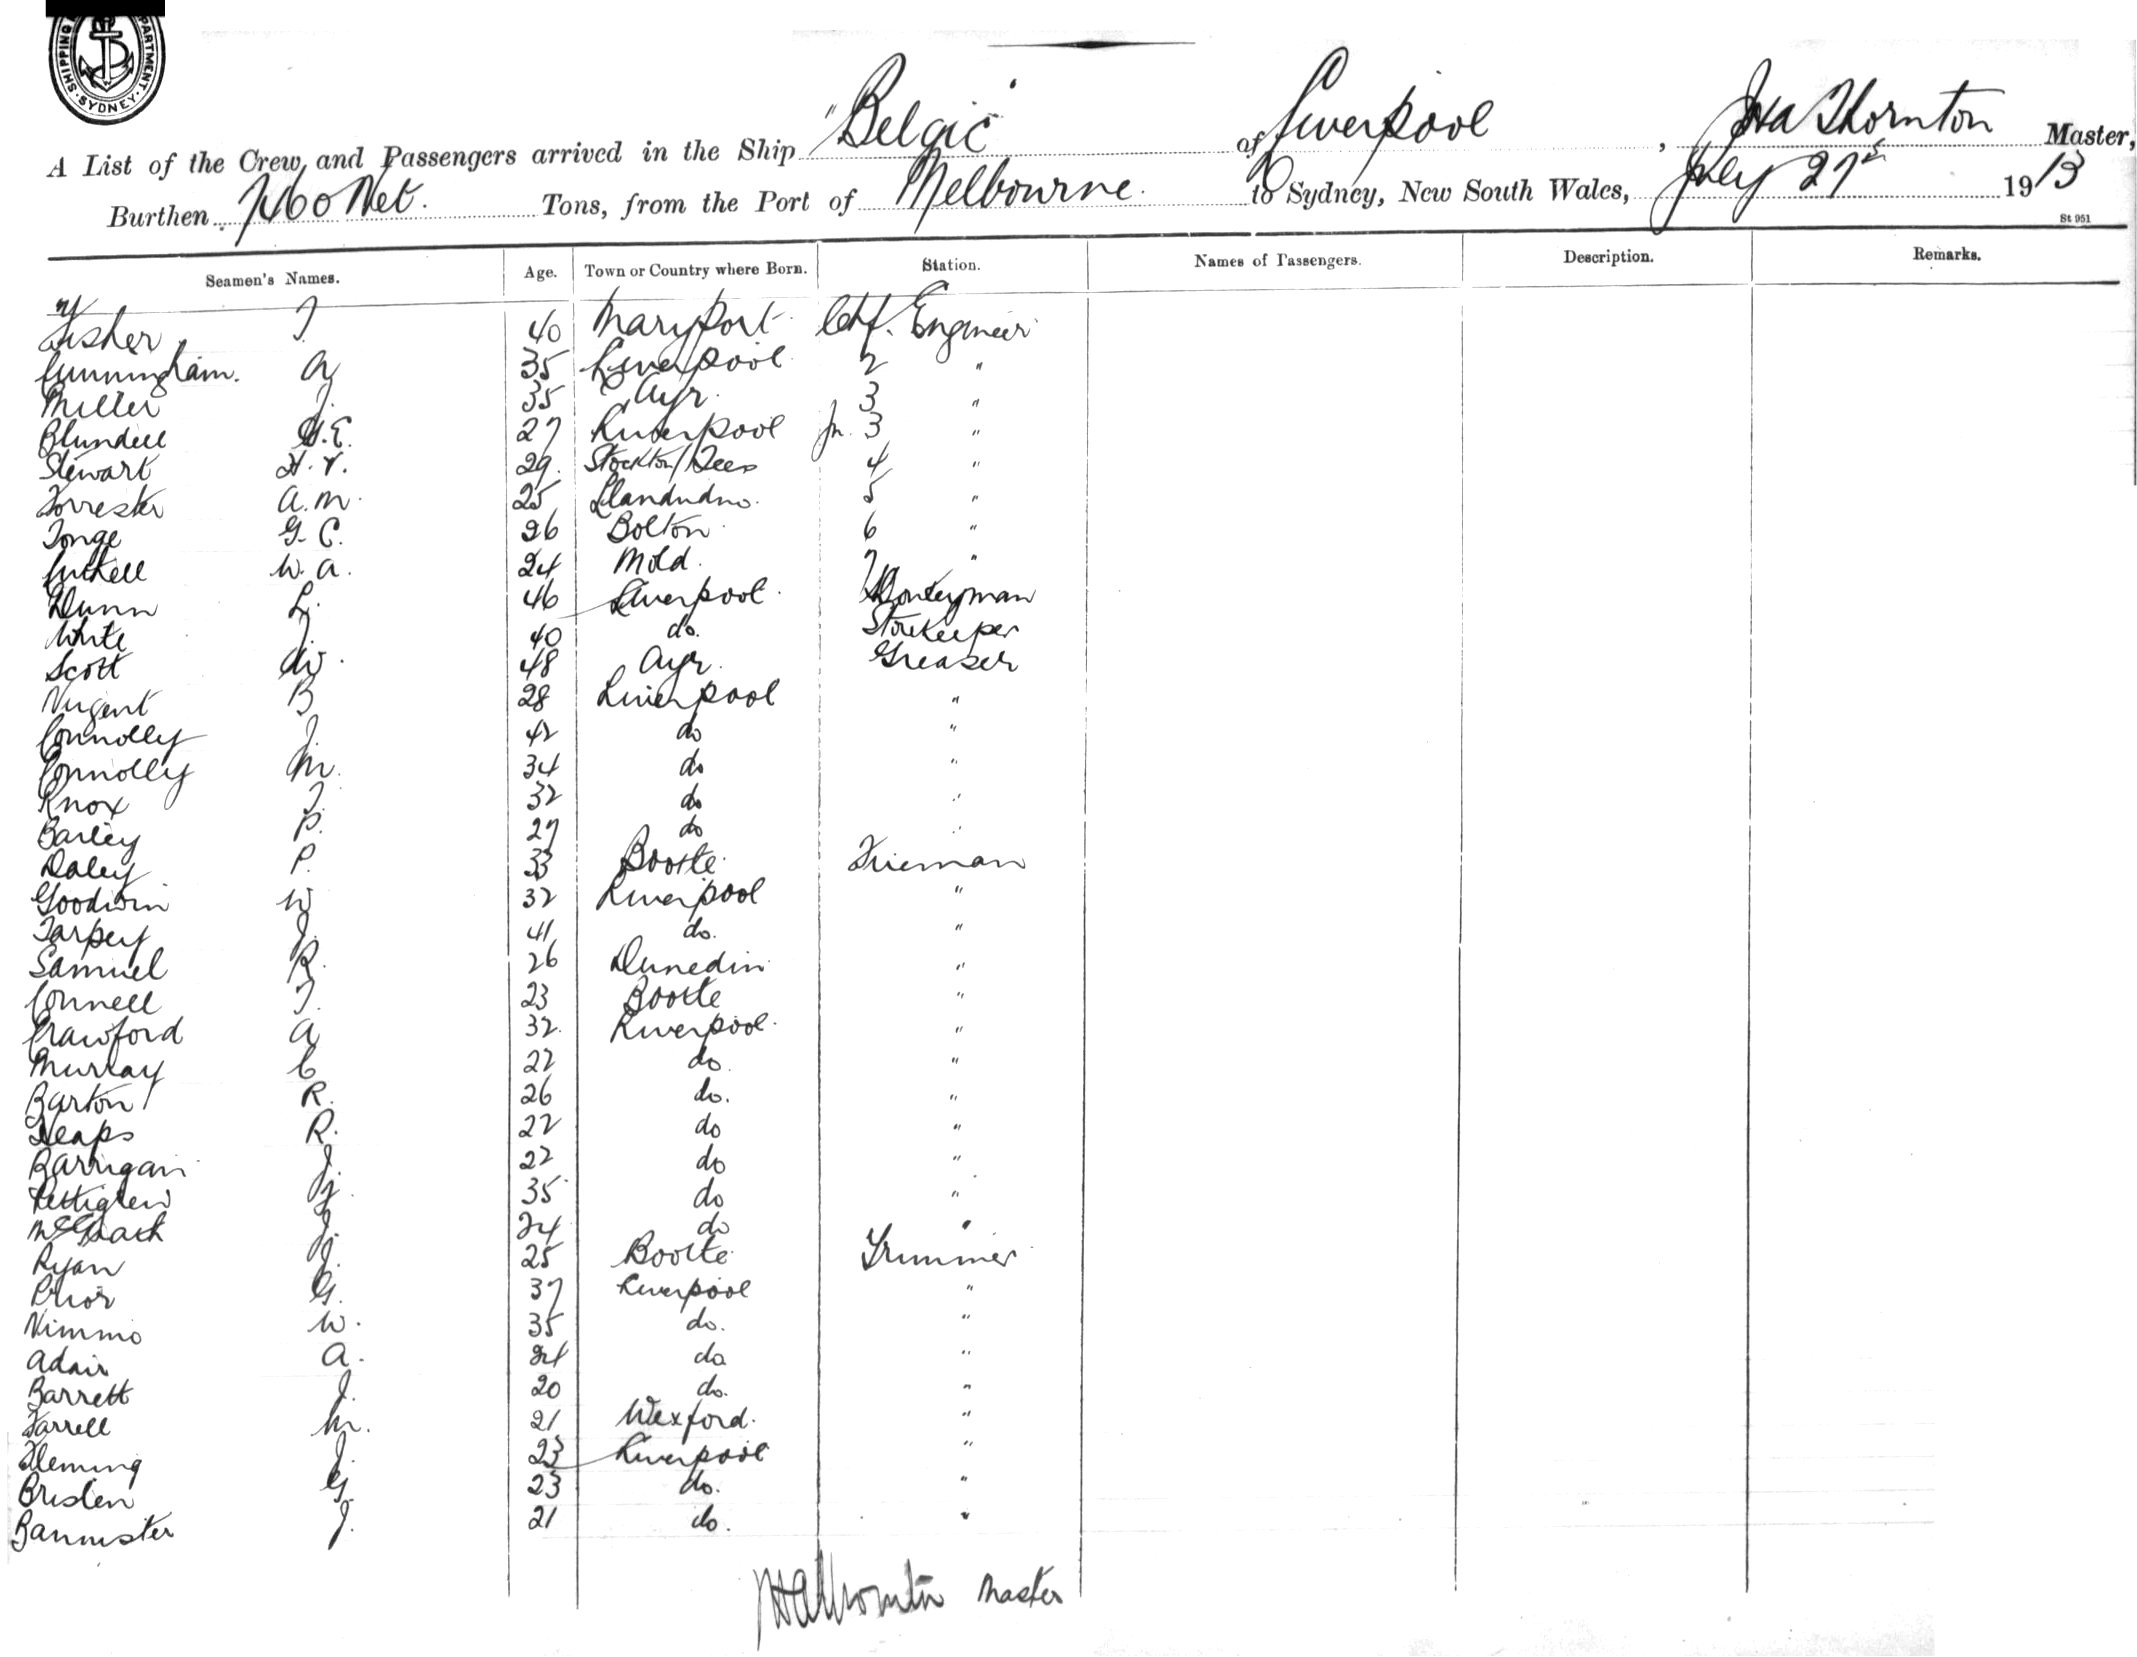 SHIPPING DEPARTMENT. SYDNEY.
A List of the Crew and Passengers arrived in the Ship "Belgic" of Liverpool, Thornton Master,
Burthen 7460 Net. Tons, from the Port of Melbourne. to Sydney, New South Wales, July 27th 1913
St 951
Seamen's Names. Age. Town or Country where Born. Station. Names of Passengers. Description. Remarks.
Fisher T. 40 Maryport Chf. Engineer
Cunningham. A 35 Liverpool 2 "
Miller J. 35 Ayr. 3 "
Blundell G.E. 27 Liverpool Jn. 3 "
Stewart H.V. 29. Stockton/Tees 4 "
Forrester A.M. 25 Llandudno. 5 "
Tonge G.C. 26 Bolton 6 "
W.A. 24 Mold. 7 "
Dunn L. 46 Liverpool. Donkeyman
White J. 40 do. Storekeeper
Scott W. 48 Ayr. Greaser
Nugent B 28 Liverpool "
Connolly J. 42 do "
Connolly M. 34 do "
Knox J. 32 do "
Barley P. 27 do "
Daley P. 33 Bootle Fireman
Goodwin W 32 Liverpool "
Tarpey J. 41 do. "
Samuel R. 26 Dunedin "
Connell T. 23 Bootle "
Crawford A 32. Liverpool. "
Murray C 22 do. "
Barton R. 26 do. "
Heaps R. 22 do "
Barrigan J. 22 do "
Pettigrew J. 35 do "
McGrath J. 24 do "
Ryan J. 25 Bootle Trimmer
Prior G. 37 Liverpool "
Nimmo W. 35 do. "
Adair A. 24 do "
Barrett J. 20 do. "
Farrell M. 21 Wexford. "
Fleming J. 23 Liverpool "
Brislen G. 23 do. "
Bannister J. 21 do. "
Thornton Master